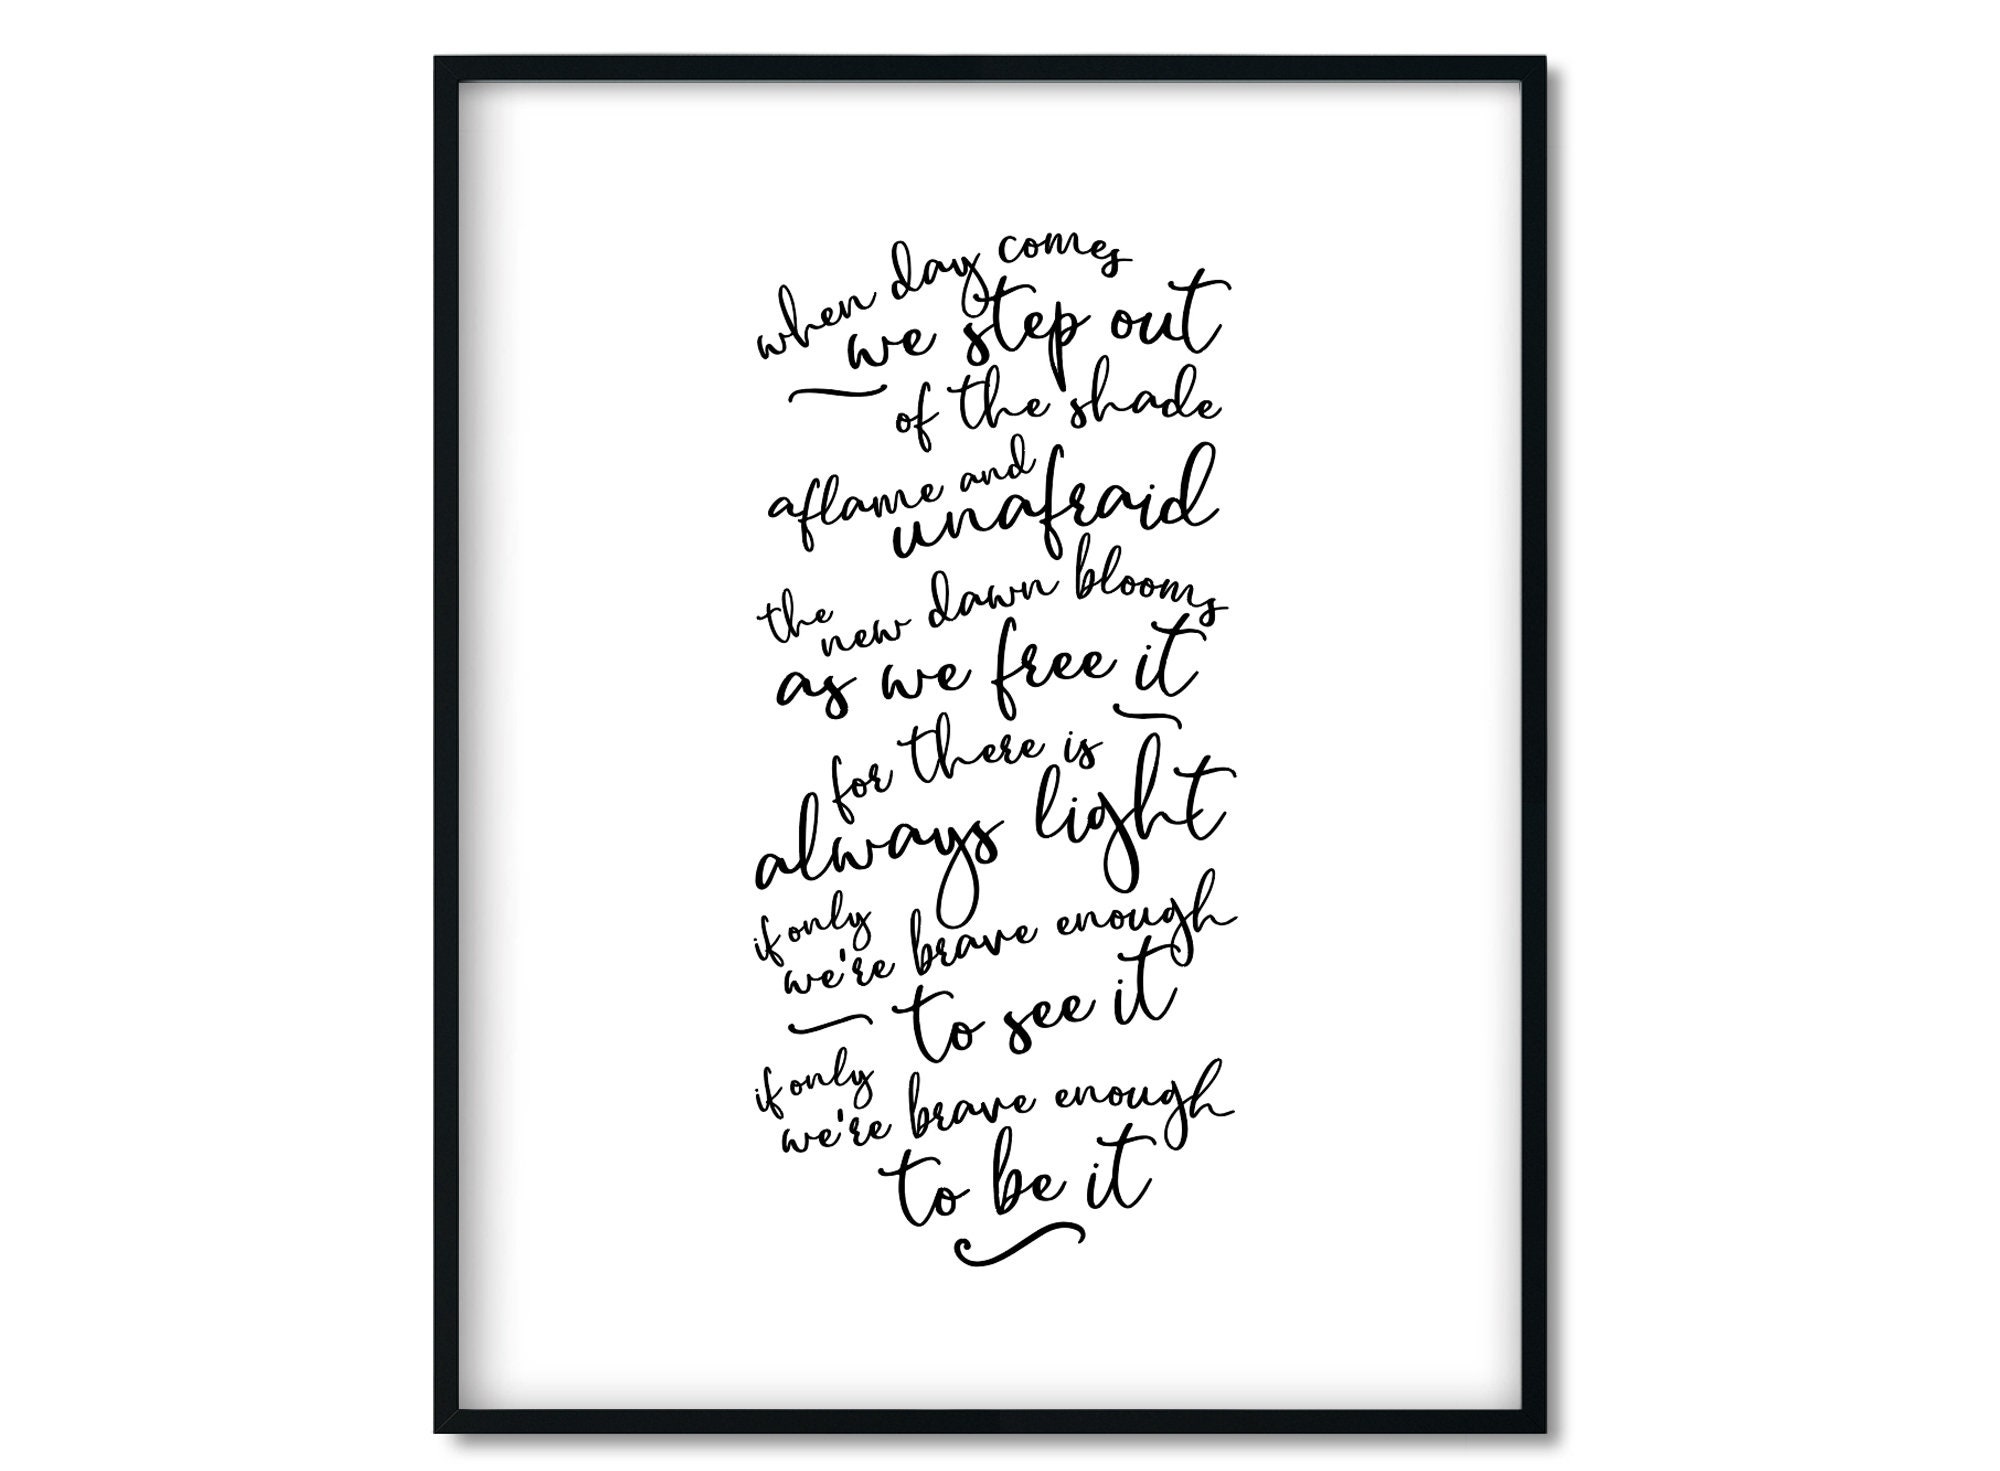 when day comes
we step out
of the shade
aflame and
unafraid
the new dawn blooms
as we free it
for there is
always light
if only
we're brave enough
to see it
if only
we're brave enough
to be it